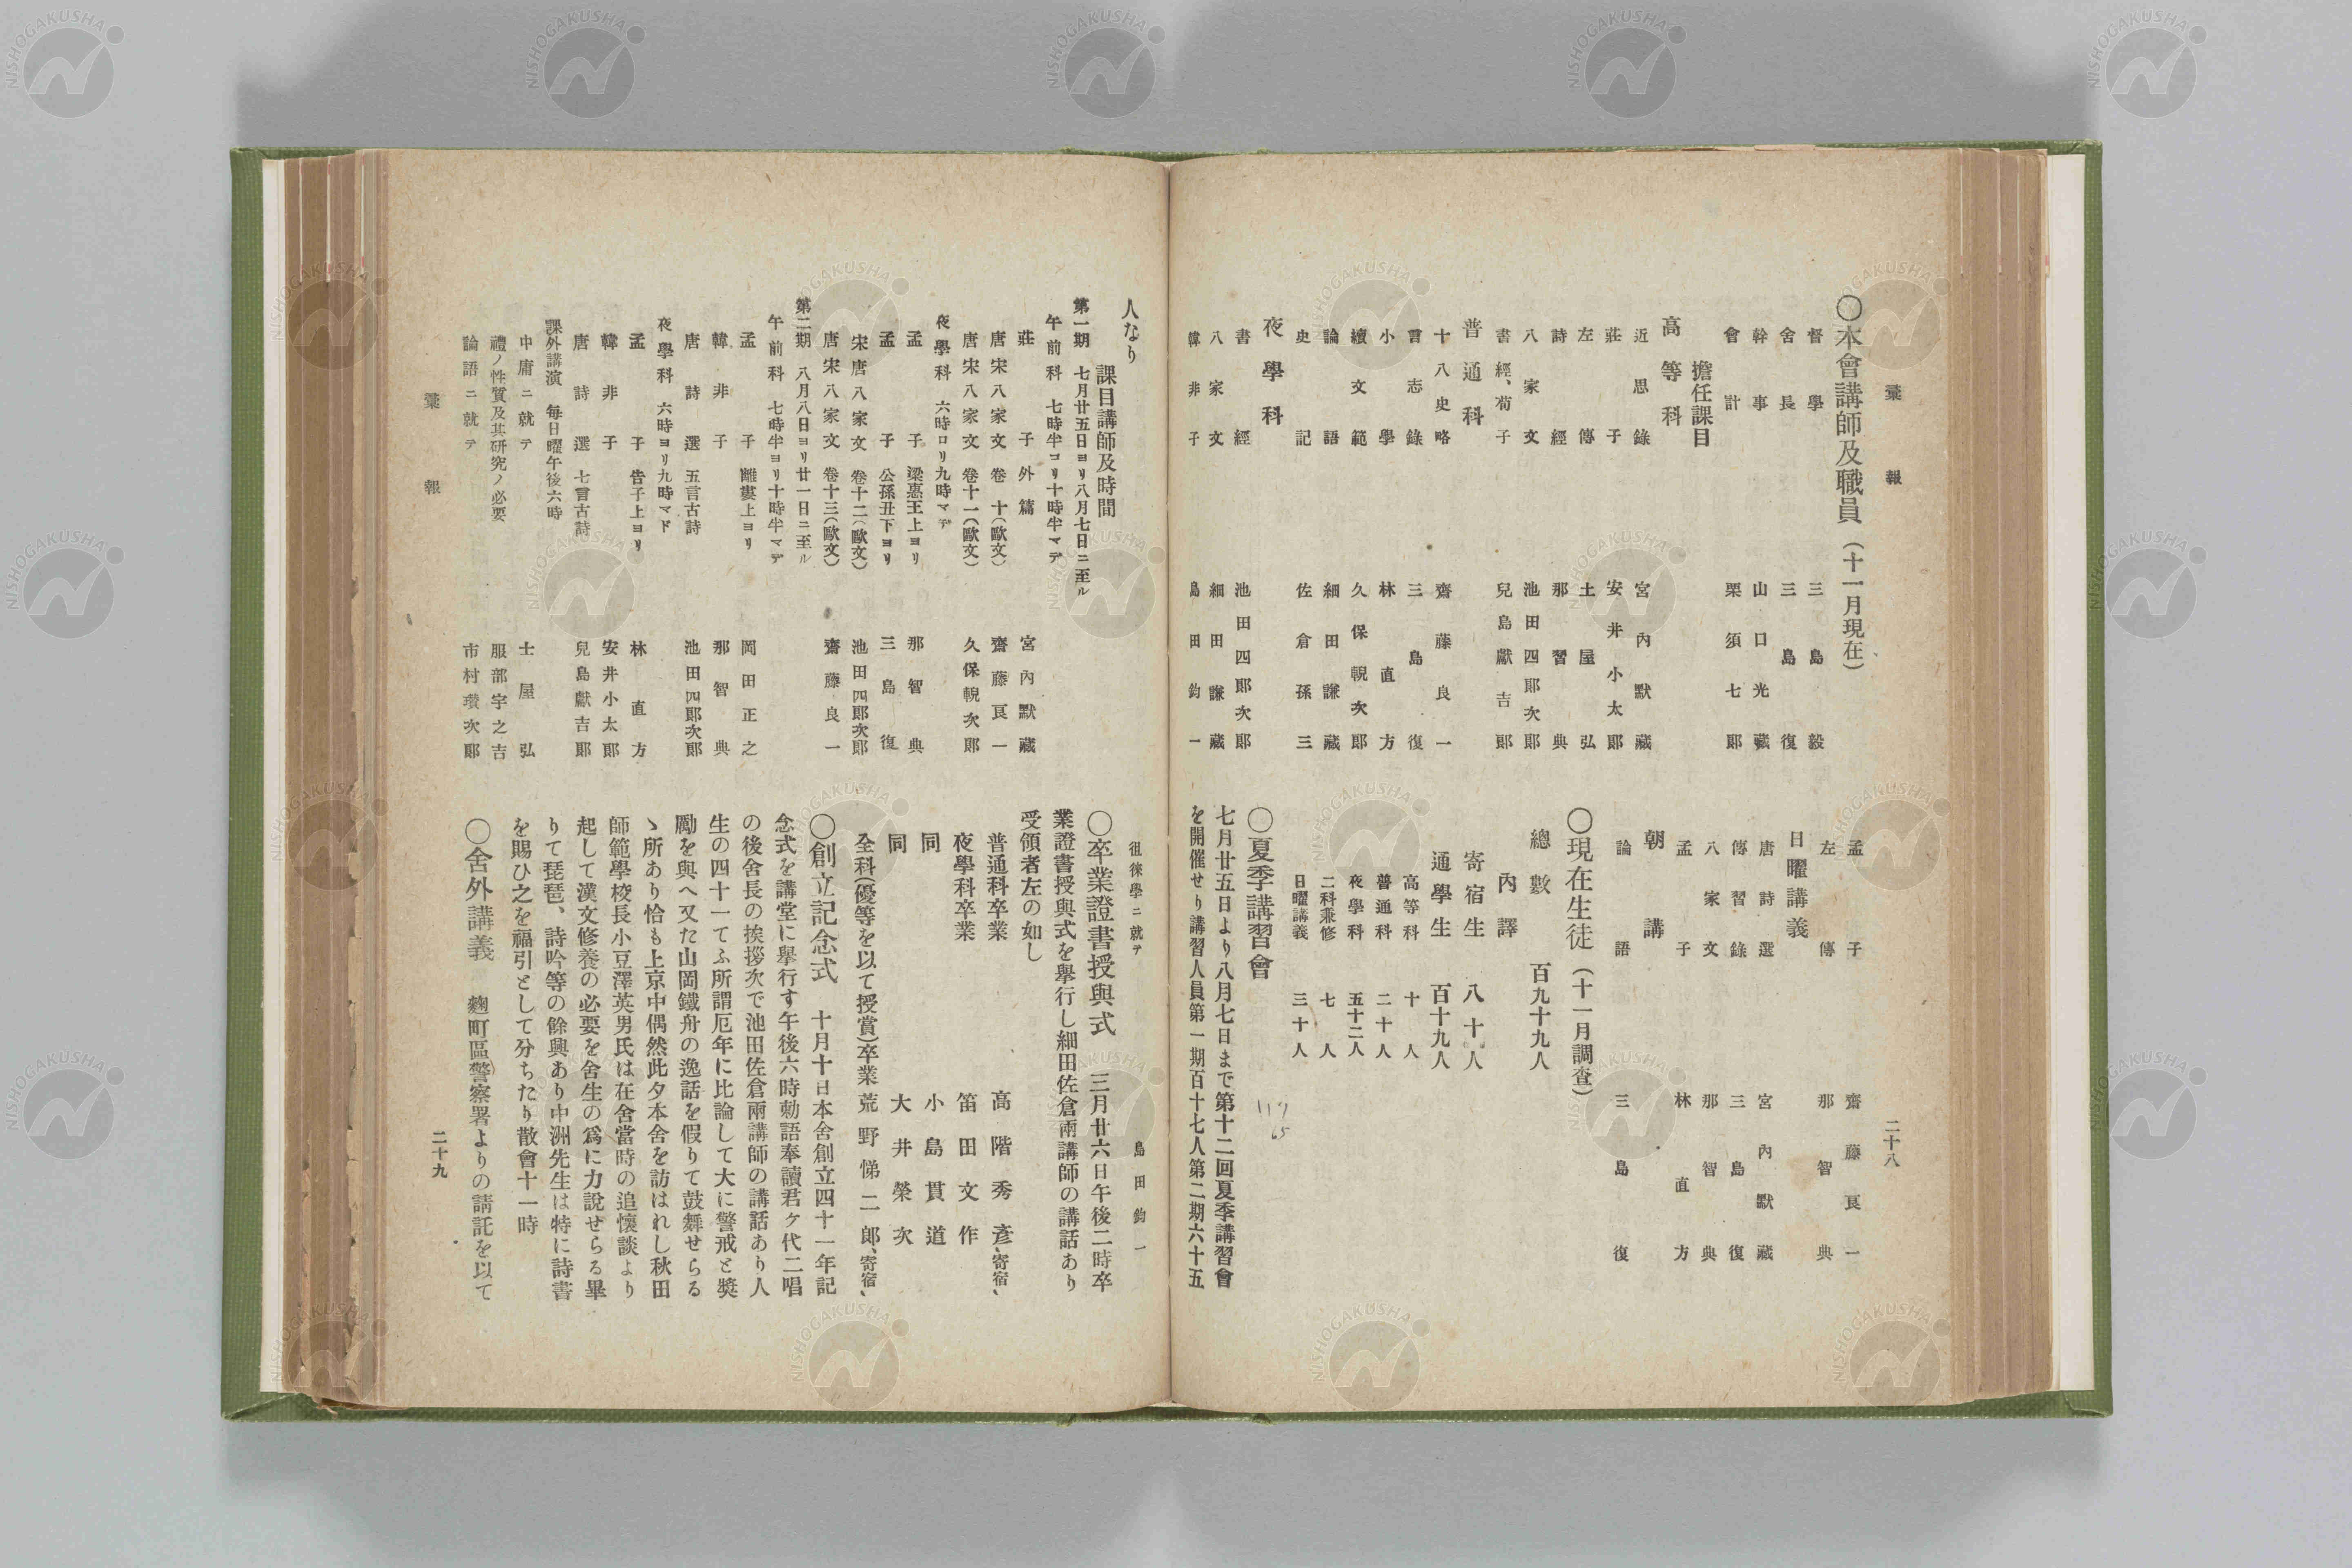 彙報
二十八
〇本會講師及職員（十一月現在）
督學 三島毅
舍長 三島復
幹事 山口光藏
會計 栗須七郞
擔任課目
高等科
近思錄 宮內默藏
莊子 安井小太郞
左傳 土屋弘
詩經 那智典
八家文 池田四郞次郞
書經、荀子 兒島獻吉郞
普通科
十八史略 齋藤良一
言志錄 三島復
小學 林直方
續文範 久保輗次郞
論語 細田謙藏
史記 佐倉孫三
夜學科
書經 池田四郞次郞
八家文 細田謙藏
韓非子 島田鈞一
孟子 齋藤良一
左傳 那智典
日曜講義
唐詩選 宮內默藏
傳習錄 三島復
八家文 那智典
孟子 林直方
朝講
論語 三島復
〇現在生徒（十一月調査）
總數 百九十九人
內譯
寄宿生 八十人
通學生 百十九人
高等科 十人
普通科 二十人
夜學科 五十二人
二科兼修 七人
日曜講義 三十人
〇夏季講習會
七月廿五日より八月七日まで第十二回夏季講習會
を開催せり講習人員第一期百十七人第二期六十五
117
65
人なり
課目講師及時間
第一期 七月廿五日ヨリ八月七日ニ至ル
午前科 七時半ヨリ十時半マデ
莊子 外篇 宮內默藏
唐宋八家文 卷十（歐文） 齋藤良一
唐宋八家文 卷十一（歐文） 久保輗次郞
夜學科 六時ロリ九時マデ
孟子 梁惠王上ヨリ 那智典
孟子 公孫丑下ヨリ 三島復
宋唐八家文 卷十二（歐文） 池田四郞次郞
唐宋八家文 卷十三（歐文） 齋藤良一
第二期 八月八日ヨリ廿一日ニ至ル
午前科 七時半ヨリ十時半マデ
孟子 離婁上ヨリ 岡田正之
韓非子 那智典
唐詩選 五言古詩 池田四郞次郞
夜學科 六時ヨリ九時マド
孟子 告子上ヨリ 林直方
韓非子 安井小太郞
唐詩選 七言古詩 兒島獻吉郞
課外講演 每日曜午後六時
中庸ニ就テ 土屋弘
禮ノ性質及其研究ノ必要 服部宇之吉
論語ニ就テ 市村瓚次郞
徂徠學ニ就テ 島田鈞一
〇卒業證書授與式 三月廿六日午後二時卒
業證書授與式を擧行し細田佐倉兩講師の講話あり
受領者左の如し
普通科卒業 高階秀彥、寄宿、
夜學科卒業 笛田文作
同 小島貫道
同 大井榮次
全科（優等を以て授賞）卒業 荒野悌二郞、寄宿、
〇創立記念式 十月十日本舍創立四十一年記
念式を講堂に擧行す午後六時勅語奉讀君ケ代二唱
の後舍長の挨拶次で池田佐倉兩講師の講話あり人
生の四十一てふ所謂厄年に比論して大に警戒と奬
勵を與へ又た山岡鐵舟の逸話を假りて鼓舞せらる
ゝ所あり恰も上京中偶然此夕本舍を訪はれし秋田
師範學校長小豆澤英男氏は在舍當時の追懷談より
起して漢文修養の必要を舍生の爲に力說せらる畢
りて琵琶、詩吟等の餘興あり中洲先生は特に詩書
を賜ひ之を福引として分ちたり散會十一時
〇舍外講義 麴町區警察署よりの請託を以て
彙報
二十九